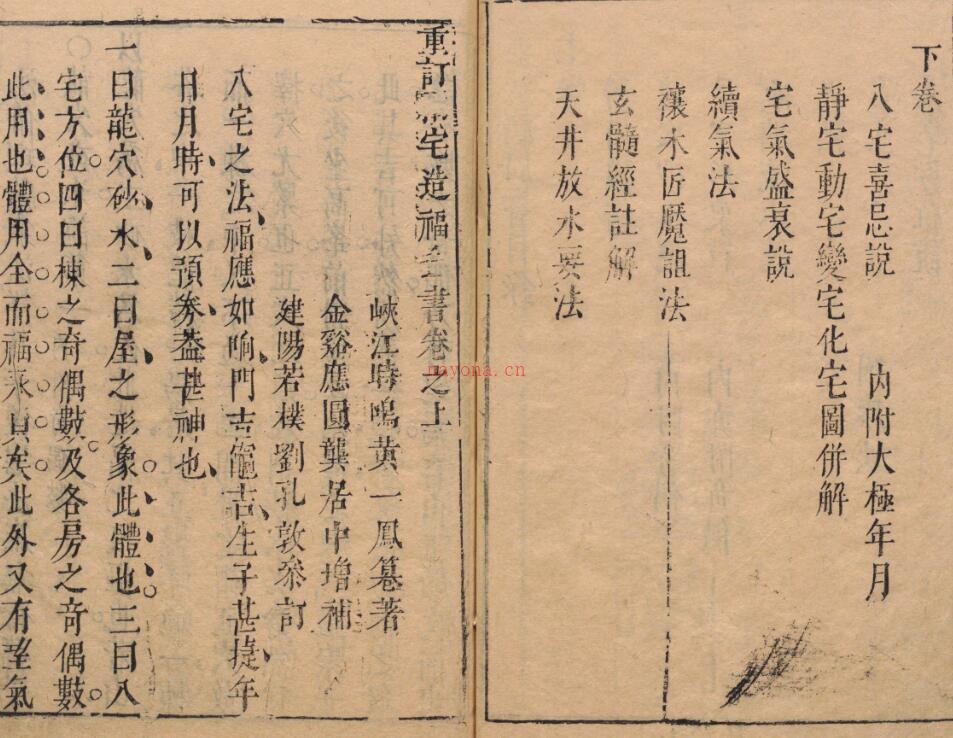 下卷
八宅喜忌說 內附大極年月
靜宅動宅變宅化宅圖併解
宅氣盛衰說
續氣法
禳木匠魘詛法
玄髓經註解
天井放水要法
重訂 宅造福全書卷之上
峽江時鳴黃一鳳篡著
金谿應圓龔居中增補
建陽若樸劉孔敦叅訂
八宅之法福應如响門吉竈吉生子甚㨗年
日月時可以預券葢甚神也
一曰龍穴砂水二曰屋之形象此體也三曰八
宅方位四曰棟之奇偶數及各房之奇偶數
此用也體用全而福永貞矣此外又有望氣
nayona.cn